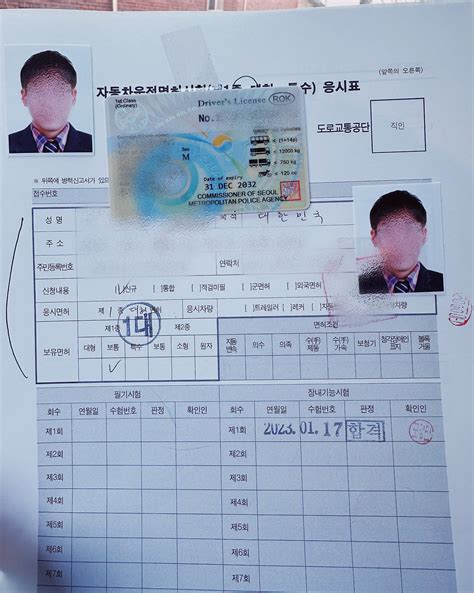 (앞쪽의 오른쪽)
응시표
1st Class
(Ordinary)
Driver's License ROK
No.
도로교통공단
직인
Sex
M
12000 kg
750 kg
125 cc
Date of expiry
31 DEC 2032
COMMISSIONER OF SEOUL
METROPOLITAN POLICE AGENCY
접수번호
성 명
국적 대한민국
주 소
주민등록번호
연락처
신청내용
신규 통합 적검미필 군면허 외국면허
응시면허 제1종 대형 응시차량 트레일러 레커
1대
제1종 제2종 면허조건
보유면허 대형 보통 특수 보통 소형 원자 자동변속 의수 의족 수(手)제동 수(手)가속 보청기 청각장애인표지 볼록거울
필기시험 장내기능시험
회수 연월일 수험번호 판정 확인인 회수 연월일 수험번호 판정 확인인
제1회 제1회 2023.01.17 합격
제2회 제2회
제3회 제3회
제4회 제4회
제5회 제5회
제6회 제6회
제7회 제7회